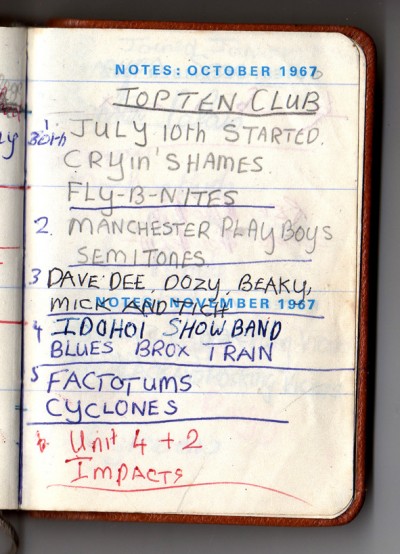 NOTES: OCTOBER 1967
TOP TEN CLUB
1. JULY 10th STARTED.
CRYin' SHAMES.
FLY-B-NITES
2. MANCHESTER PLAYBOYS
SEMITONES
3 DAVE DEE, DOZY, BEAKY,
MICK AND TICH
NOTES: NOVEMBER 1967
4 IDOHOI SHOWBAND
BLUES BROX TRAIN
5 FACTOTUMS
CYCLONES
6. Unit 4 + 2
IMPACTS